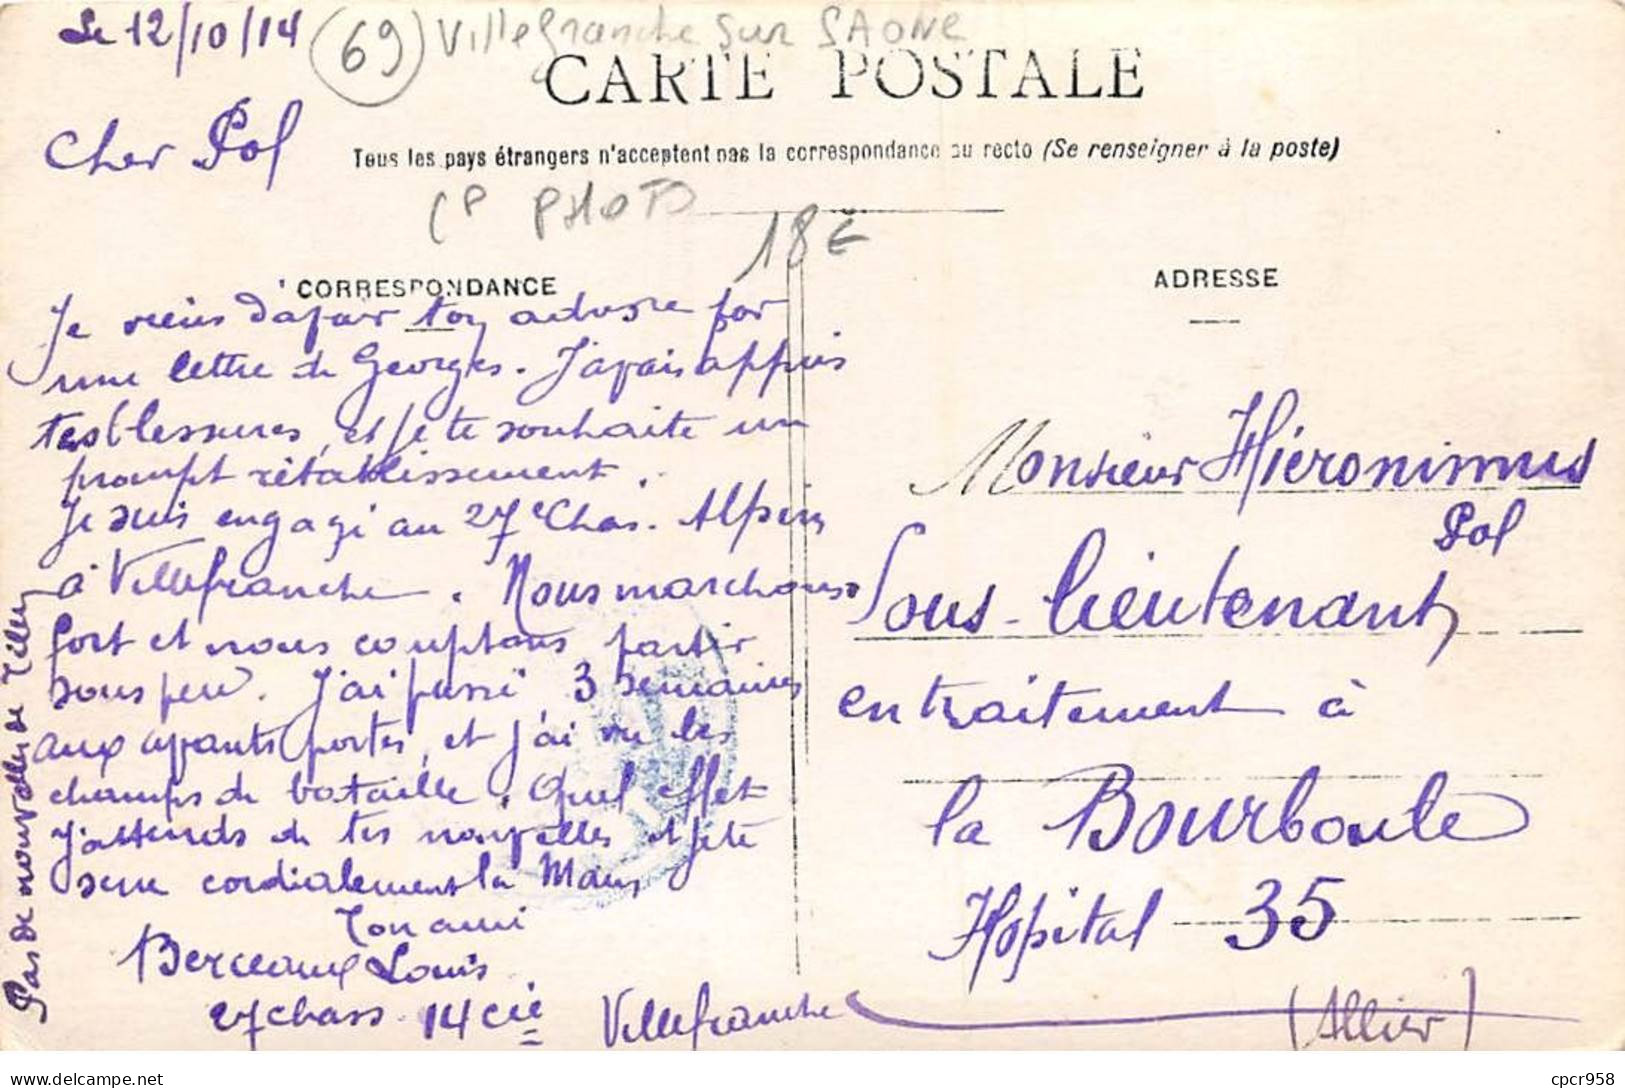 Le 12/10/14
(69) Villefranche sur SAONE
CARTE POSTALE
Cher Pol
Tous les pays étrangers n'acceptent pas la correspondance au recto (Se renseigner à la poste)
CP PHOTO
18€
CORRESPONDANCE
Je viens d'avoir ton adresse par
une lettre de Georges. J'avais appris
tes blessures, et je te souhaite un
prompt rétablissement.
Je suis engagé au 27e Chas. Alpins
à Villefranche. Nous marchons
fort et nous comptons partir
sous peu. J'ai passé 3 semaines
aux avants postes, et j'ai vu les
champs de bataille. Quel effet
J'attends de tes nouvelles et je te
serre cordialement la Main
Ton ami
Berceaux Louis
27 chass. 14 cie Villefranche
Pas de nouvelles de
ADRESSE
Monsieur Hiéronimus
Pol
Sous-Lieutenant
en traitement à
la Bourboule
Hopital 35
(Allier)
cpcr958